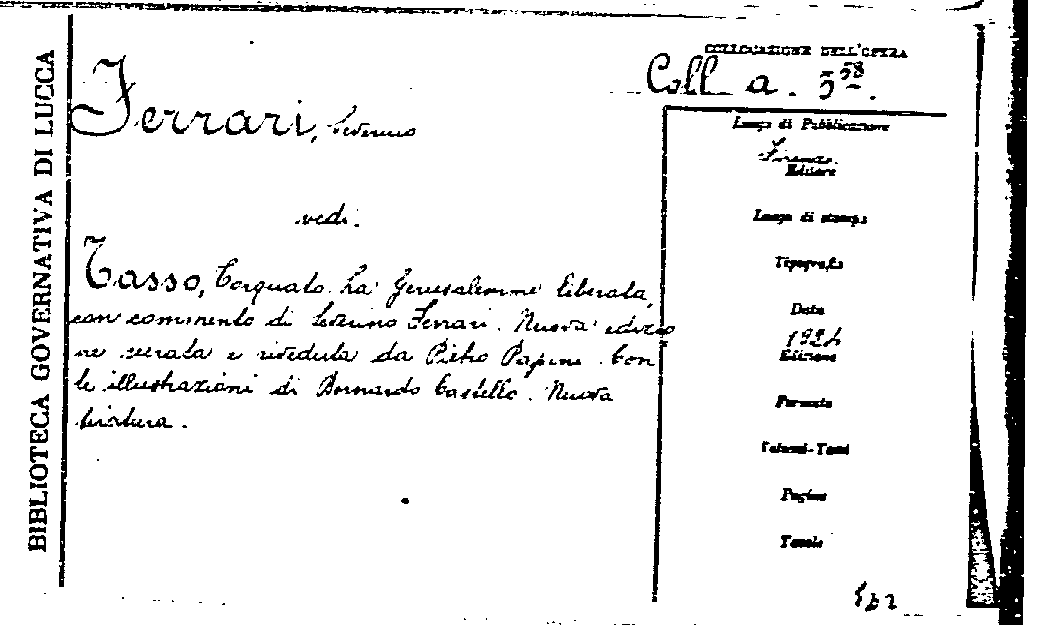 BIBLIOTECA GOVERNATIVA DI LUCCA
COLLOCAZIONE DELL'OPERA
Coll a. 5 58.
Ferrari, Severino
vedi.
Tasso, Torquato. La Gerusalemme liberata,
con commento di Severino Ferrari. Nuova edizio
ne curata e riveduta da Pietro Papini. Con
le illustrazioni di Bernardo Castello. Nuova
tiratura.
Luogo di Pubblicazione
Firenze.
Editore
Luogo di stampa
Tipografia
Data
1924
Edizione
Formato
Volumi-Tomi
Pagine
Tavole